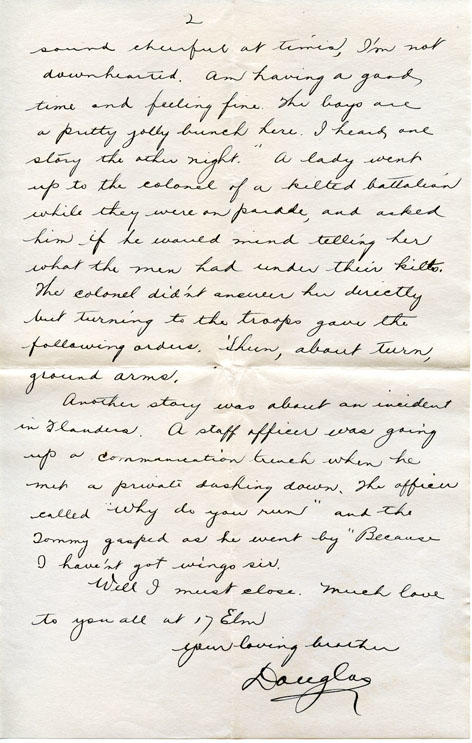 2
sound cheerful at times, I'm not
downhearted. Am having a good,
time and feeling fine. The boys are
a pretty jolly bunch here. I heard one
story the other night. "A lady went
up to the colonel of a kilted battalion
while they were on parade, and asked
him if he would mind telling her
what the men had under their kilts.
The colonel did'nt answer her directly
but turning to the troops gave the
following orders. 'Shun, about turn,
ground arms.
Another story was about an incident
in Flanders. A staff officer was going
up a communication trench when he
met a private dashing down. The officer
called "Why do you run" and the
Tommy gasped as he went by "Because
I have'nt got wings sir.
Well I must close. Much love
to you all at 17 Elm
your loving brother
Douglas